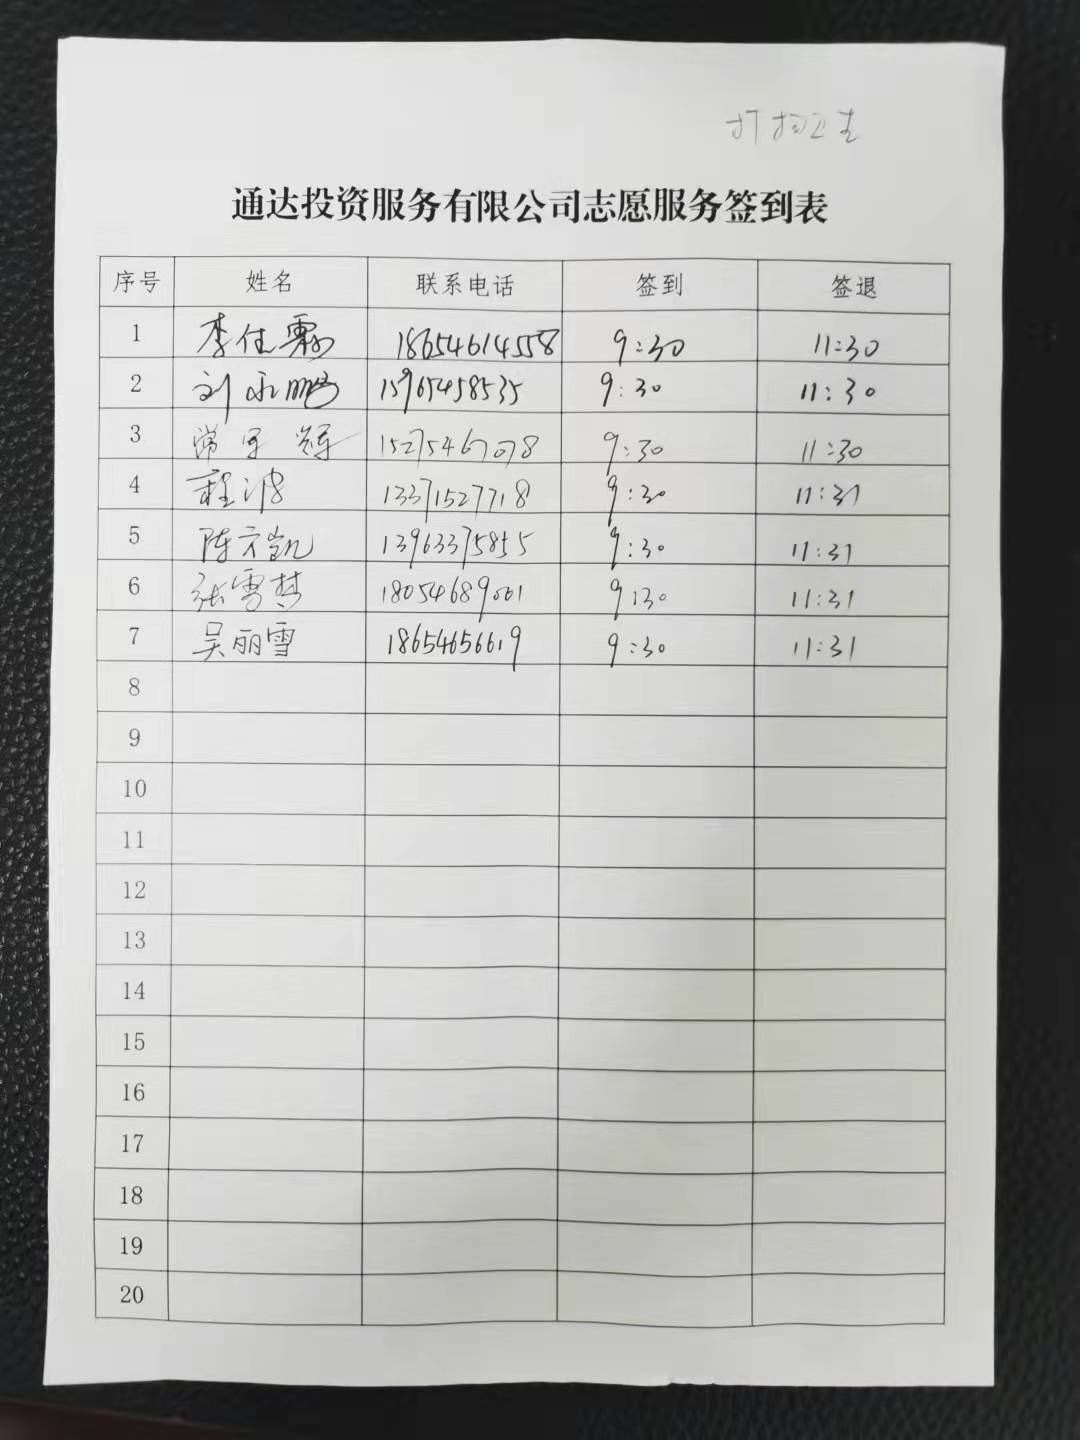 打扫卫生
通达投资服务有限公司志愿服务签到表
序号 姓名 联系电话 签到 签退
1 李佳霖 18654614558 9:30 11:30
2 刘永鹏 15965458535 9:30 11:30
3 常 辉 15275467078 9:30 11:30
4 程波 13371527718 9:30 11:31
5 陈方凯 13963375855 9:30 11:31
6 张雪梦 18054689001 9:30 11:31
7 吴丽雪 18654656619 9:30 11:31
8
9
10
11
12
13
14
15
16
17
18
19
20